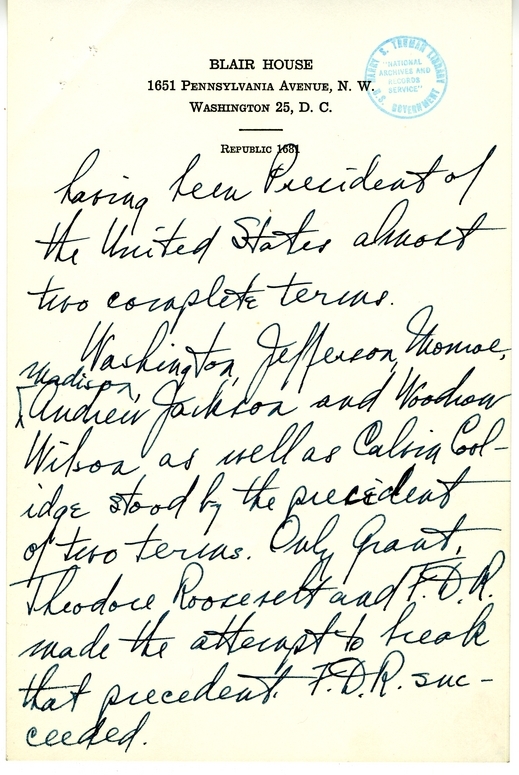 BLAIR HOUSE
1651 PENNSYLVANIA AVENUE, N. W.
WASHINGTON 25, D. C.
REPUBLIC 1681
HARRY S. TRUMAN LIBRARY
"NATIONAL
ARCHIVES AND
RECORDS
SERVICE"
U.S. GOVERNMENT
having been President of
the United States almost
two complete terms.
Washington, Jefferson, Monroe,
Madison,
Andrew Jackson and Woodrow
Wilson as well as Calvin Cool-
idge stood by the precedent
of two terms. Only Grant,
Theodore Roosevelt and F.D.R.
made the attempt to break
that precedent. F.D.R. suc-
ceeded.